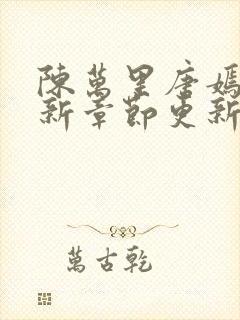 陳萬里唐嫣
新章節更新
萬古乾